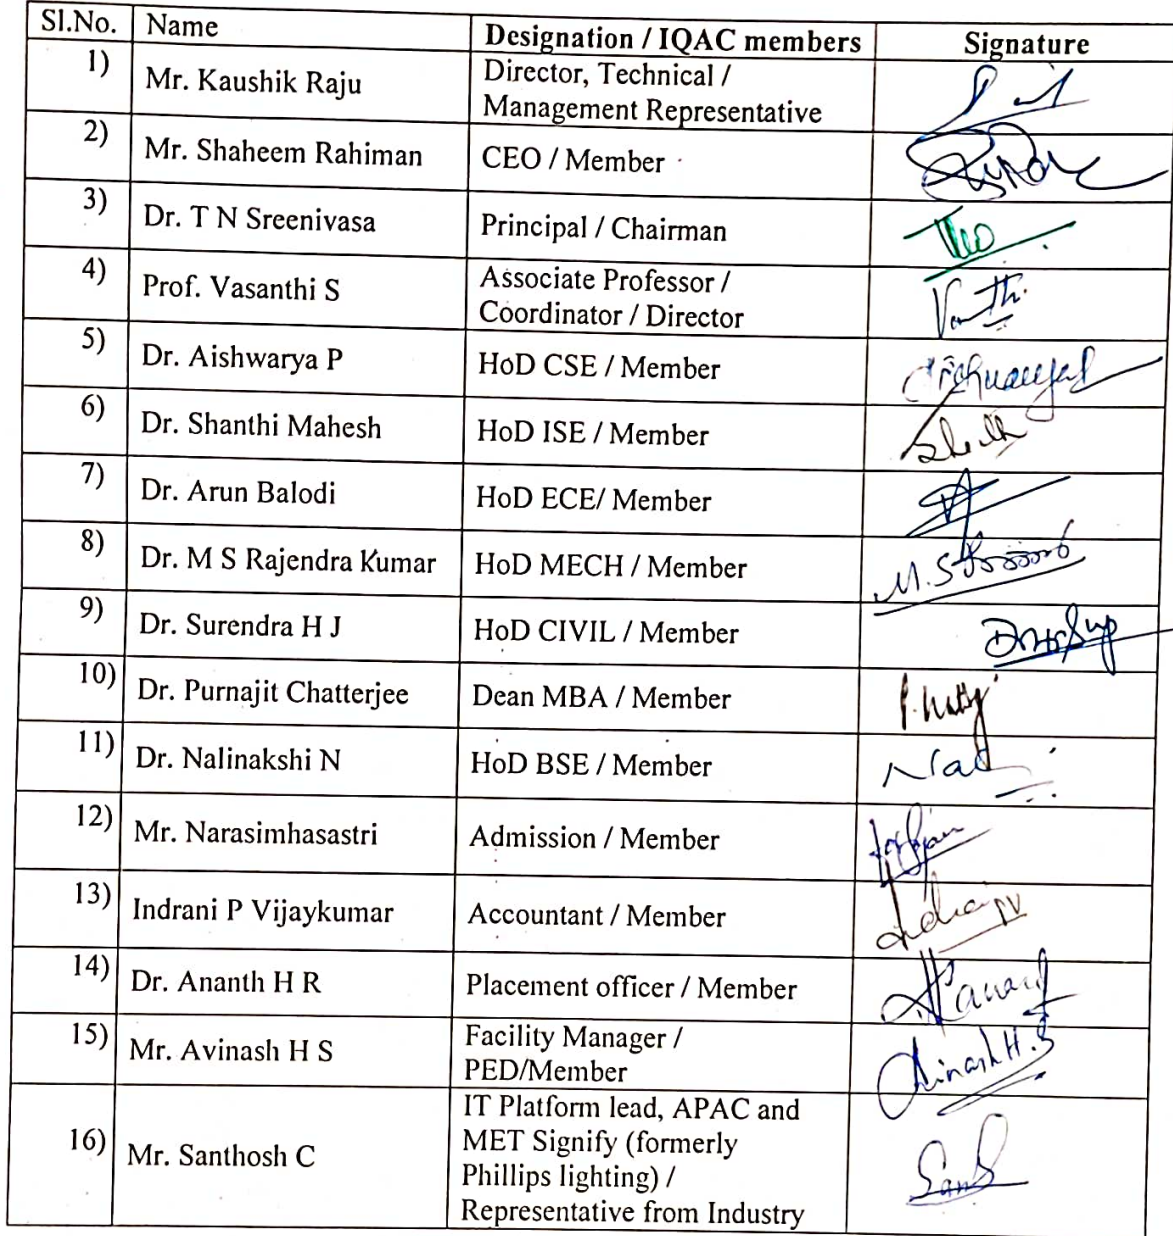 Sl.No. Name Designation / IQAC members Signature
1) Mr. Kaushik Raju Director, Technical /
Management Representative
2) Mr. Shaheem Rahiman CEO / Member
3) Dr. T N Sreenivasa Principal / Chairman
4) Prof. Vasanthi S Associate Professor /
Coordinator / Director
5) Dr. Aishwarya P HoD CSE / Member
6) Dr. Shanthi Mahesh HoD ISE / Member
7) Dr. Arun Balodi HoD ECE/ Member
8) Dr. M S Rajendra Kumar HoD MECH / Member
9) Dr. Surendra H J HoD CIVIL / Member
10) Dr. Purnajit Chatterjee Dean MBA / Member
11) Dr. Nalinakshi N HoD BSE / Member
12) Mr. Narasimhasastri Admission / Member
13) Indrani P Vijaykumar Accountant / Member
14) Dr. Ananth H R Placement officer / Member
15) Mr. Avinash H S Facility Manager /
PED/Member
Avinash H.S
16) Mr. Santhosh C IT Platform lead, APAC and
MET Signify (formerly
Phillips lighting) /
Representative from Industry